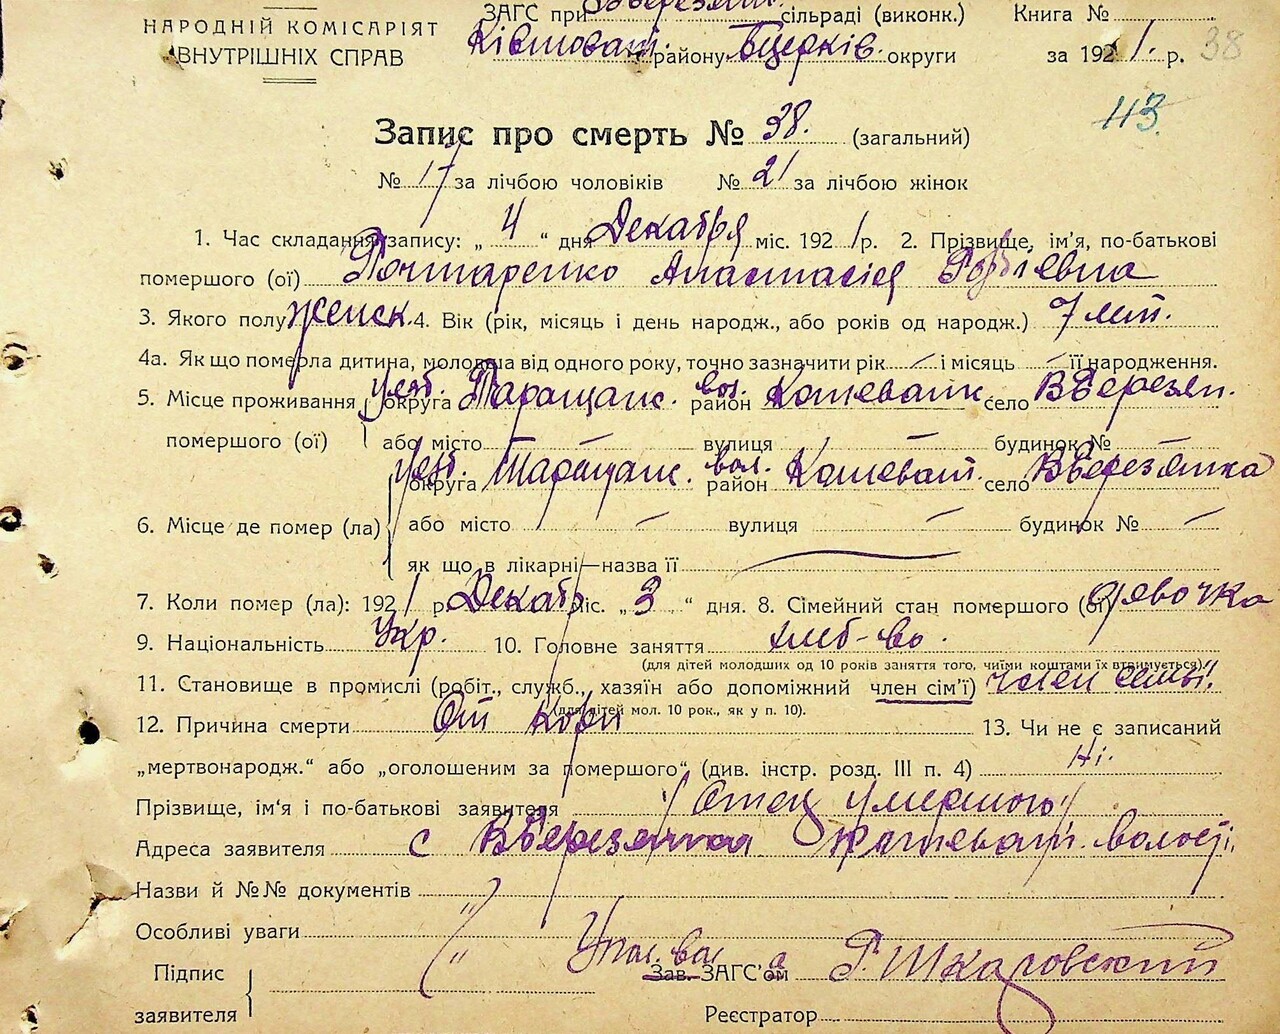 НАРОДНІЙ КОМІСАРІЯТ
ВНУТРІШНІХ СПРАВ
ЗАГС при сільраді (виконк.)
району Бцерків. округи
Книга №
за 1921 р. 38
113.
Запис про смерть № 38. (загальний)
№ 17 за лічбою чоловіків № 21 за лічбою жінок
1. Час складання запису: „ 4 “ дня Декабря міс. 1921 р. 2. Прізвище, ім’я, по-батькові
помершого (ої) Анастасія
3. Якого полу женск. 4. Вік (рік, місяць і день народж., або років од народж.) 7 лит.
4а. Як що померла дитина, молодша від одного року, точно зазначити рік — і місяць — її народження.
5. Місце проживання уезб. округа Таращанс. вол. район Кошеватс. село ВБерезян.
помершого (ої) або місто — вулиця — будинок № —
6. Місце де помер (ла) уезб. округа Таращанс. вол. район Кошеват. село ВБерезянка
або місто — вулиця — будинок № —
як що в лікарні—назва її —
7. Коли помер (ла): 1921 р. Декабр міс. „ 3 “ дня. 8. Сімейний стан помершого (ої) дявочка
9. Національність Укр. 10. Головне заняття хлиб-во.
(для дітей молодших од 10 років заняття того, чиїми коштами їх втримується).
11. Становище в промислі (робіт., служб., хазяїн або допоміжний член сім’ї) член семьї.
(для дітей мол. 10 рок., як у п. 10).
12. Причина смерти От кори 13. Чи не є записаний
„мертвонародж.“ або „оголошеним за помершого“ (див. інстр. розд. III п. 4) Ні.
Прізвище, ім’я і по-батькові заявителя / Отец умершого /
Адреса заявителя с ВБерезянка Кошеват. волості,
Назви й №№ документів
Особливі уваги
Підпис
заявителя
Упол. вол Зав. ЗАГС’ом а Г. Шкаровский
Реєстратор